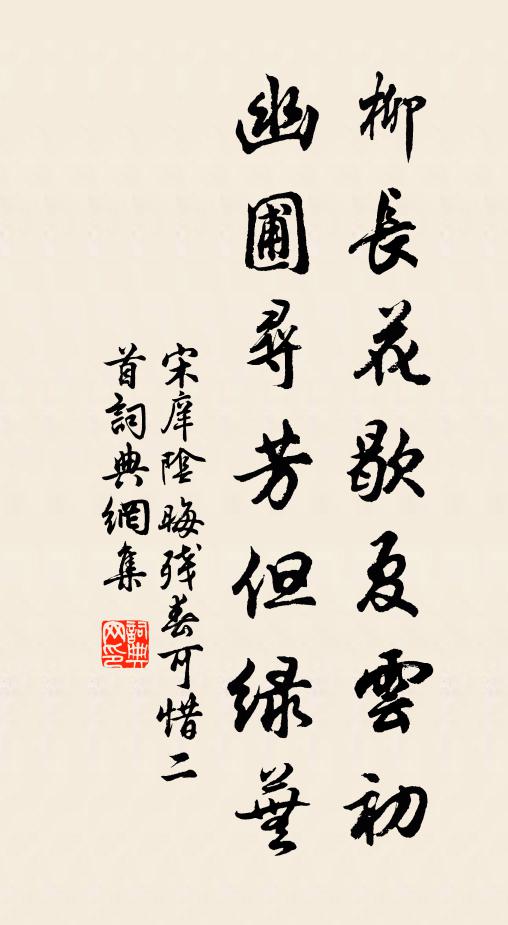 柳長花歇夏雲初
幽圃尋芳但緑蕪
宋庠陰晦殘春可惜二
首詞典網集
詞典
网印